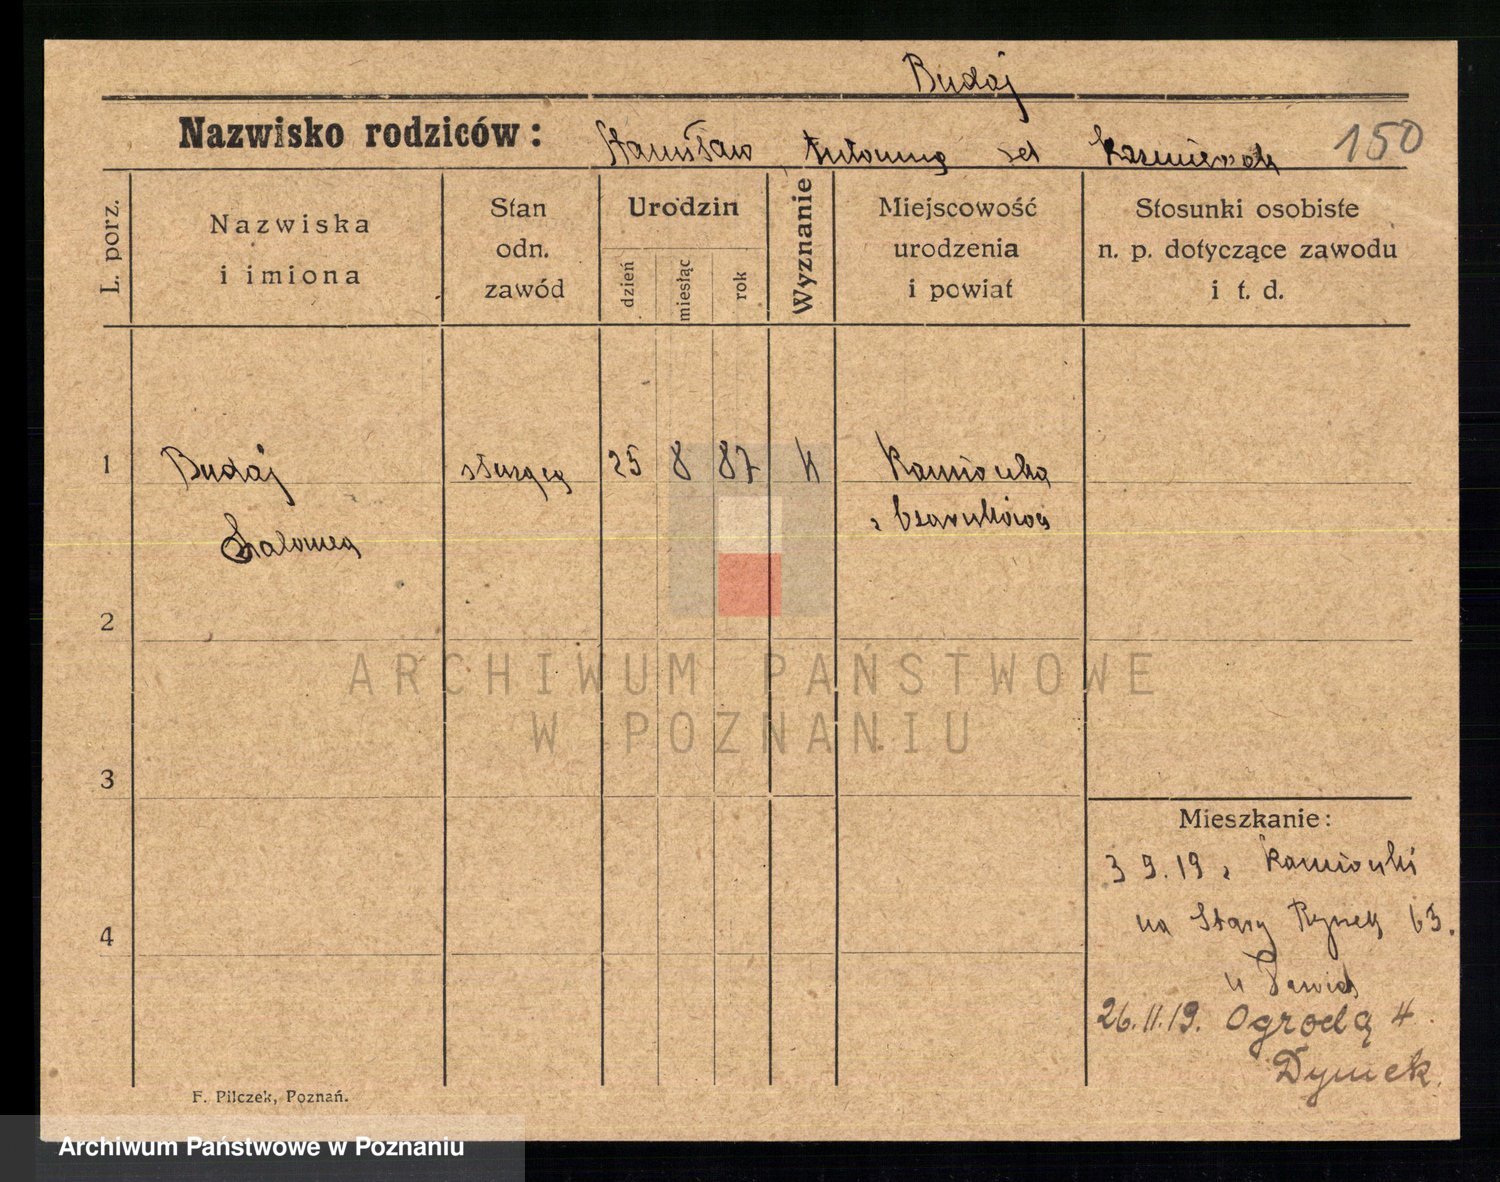 Budaj
Nazwisko rodziców: Stanisław Antonina zd 150
L. porz.
Nazwiska i imiona
Stan odn. zawód
Urodzin
dzień
miesiąc
rok
Wyznanie
Miejscowość urodzenia i powiat
Stosunki osobiste n. p. dotyczące zawodu i t. d.
1 Budaj służąca 25 8 87 K Kamionka
Salomea
2
3
4
Mieszkanie:
3 9.19 z Kamionki
na Stary Rynek 63.
u
26.11.19. Ogrodą 4.
Dymek.
F. Pilczek, Poznań.
ARCHIWUM PAŃSTWOWE
W POZNANIU
Archiwum Państwowe w Poznaniu